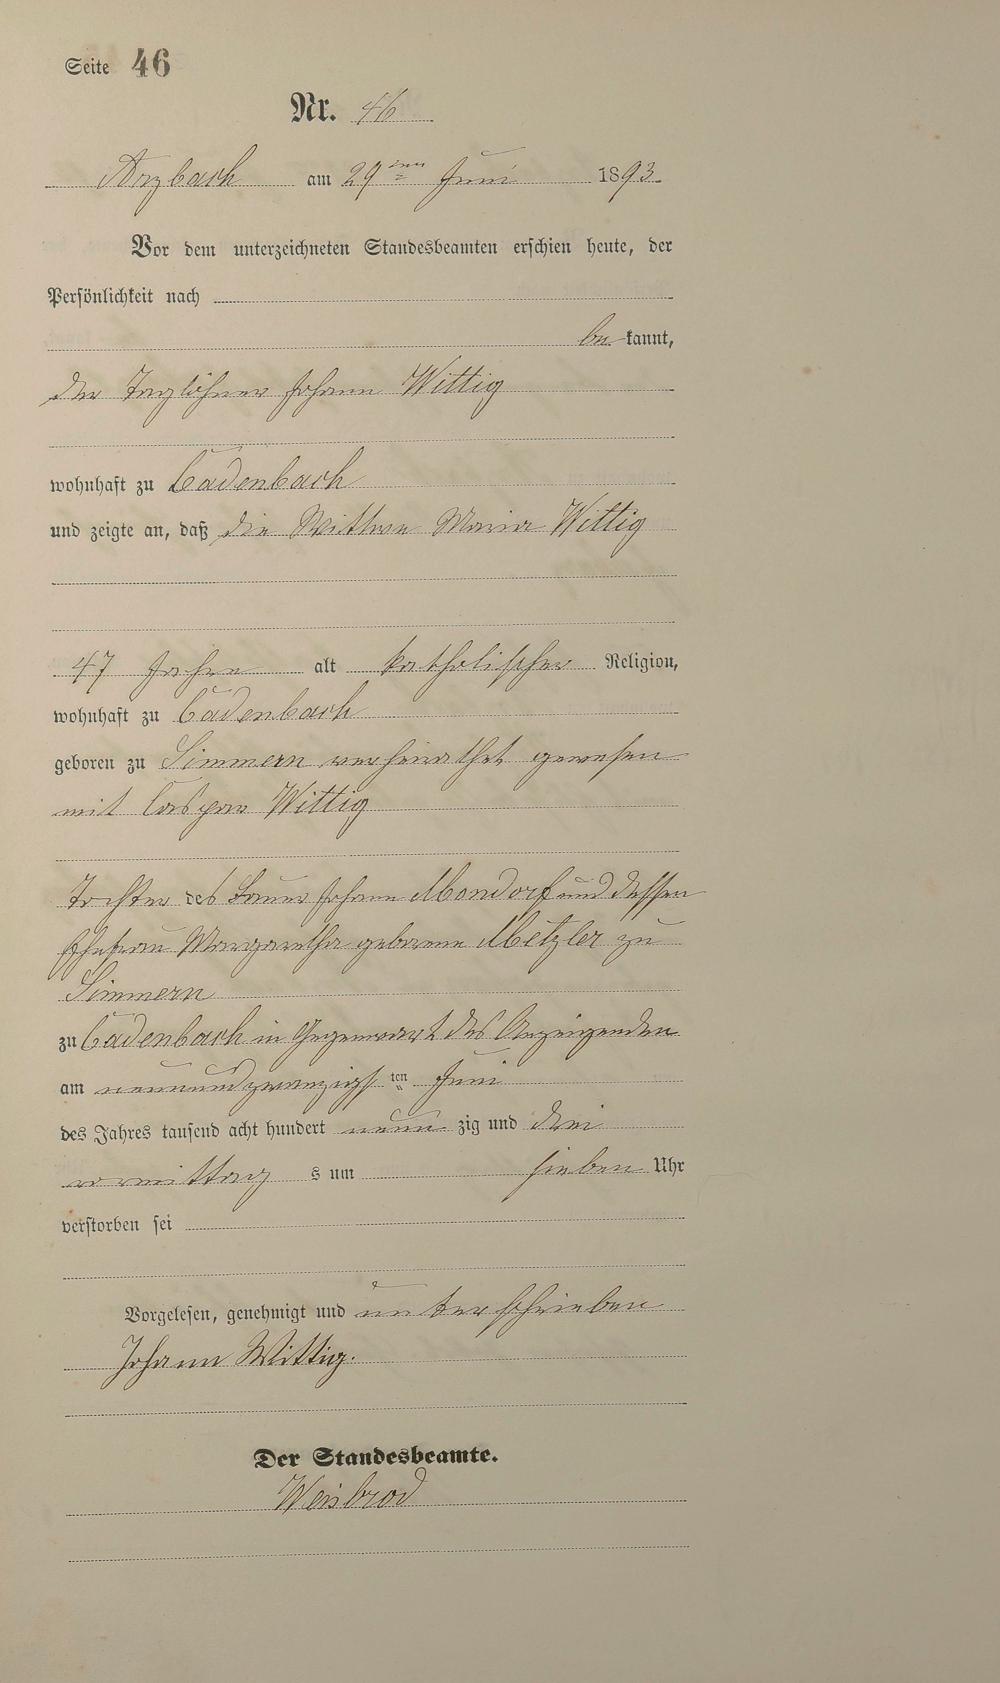 Seite 46
Nr. 46
Arzbach am 29ten Juni 1893.
Vor dem unterzeichneten Standesbeamten erschien heute, der
Persönlichkeit nach
be kannt,
der Taglöhner Johann Wittig
wohnhaft zu Cadenbach
und zeigte an, daß die Wittwe Maria Wittig
47 Jahre alt katholischer Religion,
wohnhaft zu Cadenbach
geboren zu Simmern verheirathet gewesen
mit Caspar Wittig
Tochter des Bauer Johann Mondorf und dessen
Ehefrau Margaretha geborene Metzler zu
Simmern
zu Cadenbach in Gegenwart des Anzeigenden
am neunundzwanzigsten Juni
des Jahres tausend acht hundert neun zig und drei
vormittag s um sieben Uhr
verstorben sei
Vorgelesen, genehmigt und unterschrieben
Johann Wittig.
Der Standesbeamte.
Weisbrod